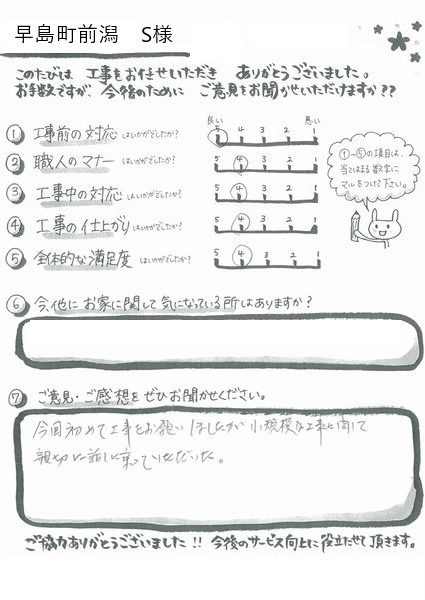 早島町前潟　S様
このたびは 工事をお任せいただき ありがとうございました。
お手数ですが、今後のために ご意見をお聞かせいただけますか??
良い 悪い
① 工事前の対応 はいかがでしたか? 5 4 3 2 1
② 職人のマナー はいかがでしたか? 5 4 3 2 1
③ 工事中の対応 はいかがでしたか? 5 4 3 2 1
④ 工事の仕上がり はいかがでしたか? 5 4 3 2 1
⑤ 全体的な満足度 はいかがでしたか? 5 4 3 2 1
①～⑤の項目は、
当てはまる数字に
マルをつけて下さい。
⑥ 今、他に お家に関して 気になっている所 はありますか?
⑦ ご意見・ご感想を ぜひお聞かせください。
今回初めて工事をお願いしましたが 小規模な工事に関して
親切に話に乗っていただいた。
ご協力ありがとうございました!! 今後のサービス向上に役立たせて頂きます。